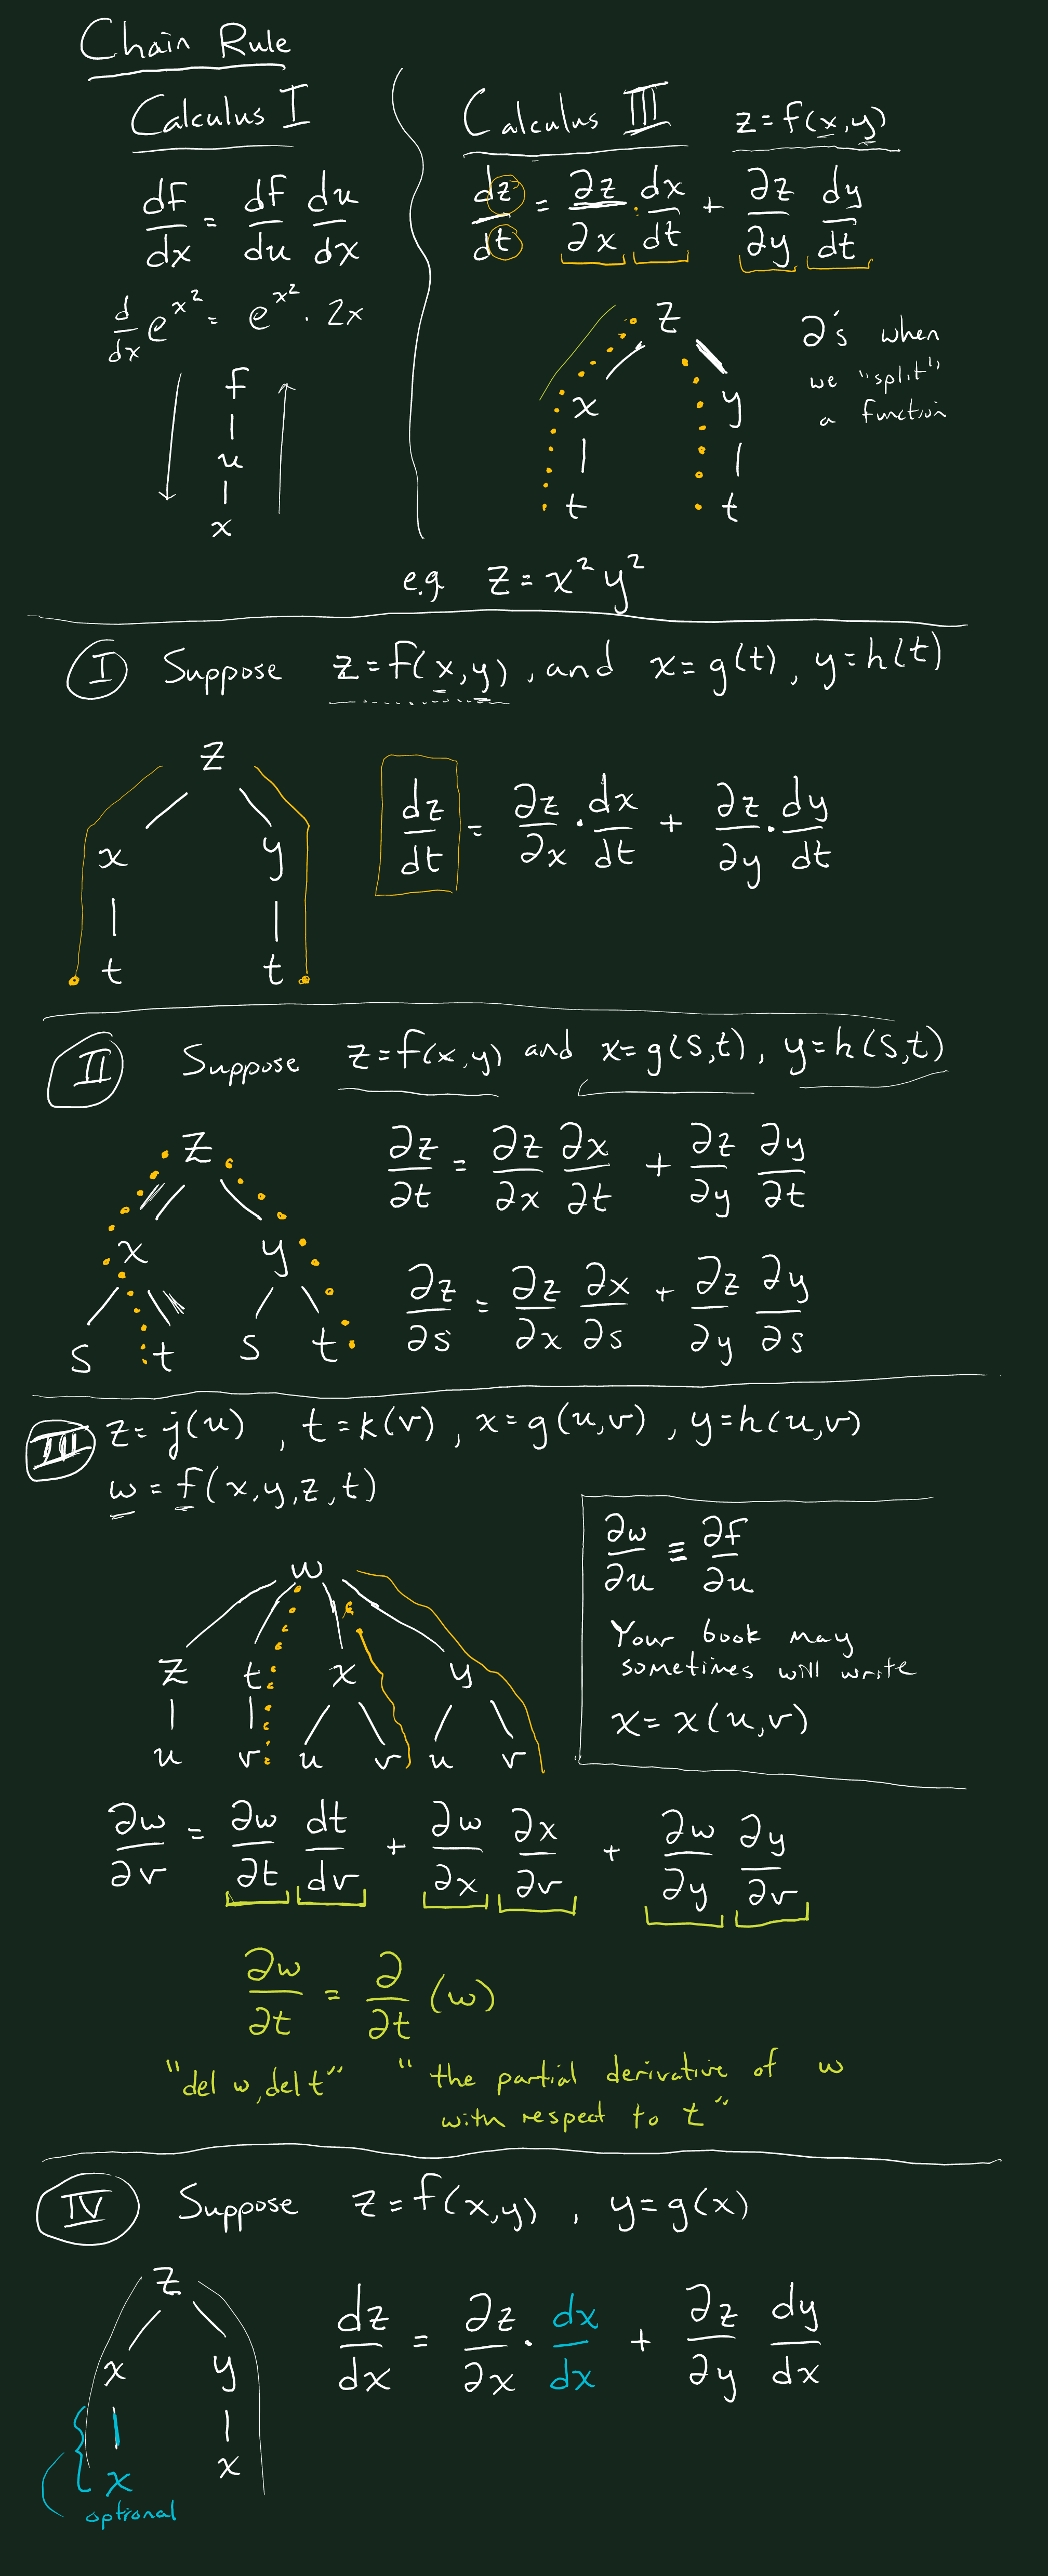 Chain Rule
Calculus I
df/dx = df/du du/dx
d/dx e^x² = e^x² · 2x
f
u
x
Calculus III z = f(x,y)
dz/dt = ∂z/∂x · dx/dt + ∂z/∂y dy/dt
z
x y
t t
∂'s when
we "split"
a function
e.g z = x² y²
I Suppose z = f(x,y), and x = g(t), y = h(t)
z
x y
t t
dz/dt = ∂z/∂x · dx/dt + ∂z/∂y · dy/dt
II Suppose z = f(x,y) and x = g(s,t), y = h(s,t)
z
x y
s t s t
∂z/∂t = ∂z/∂x ∂x/∂t + ∂z/∂y ∂y/∂t
∂z/∂s = ∂z/∂x ∂x/∂s + ∂z/∂y ∂y/∂s
III z = j(u), t = k(v), x = g(u,v), y = h(u,v)
w = f(x,y,z,t)
w
z t x y
u v u v u v
∂w/∂u ≡ ∂f/∂u
Your book may
sometimes will write
x = x(u,v)
∂w/∂v = ∂w/∂t dt/dv + ∂w/∂x ∂x/∂v + ∂w/∂y ∂y/∂v
∂w/∂t = ∂/∂t (w)
"del w, del t" "the partial derivative of w
with respect to t"
IV Suppose z = f(x,y), y = g(x)
z
x y
x x
optional
dz/dx = ∂z/∂x · dx/dx + ∂z/∂y dy/dx